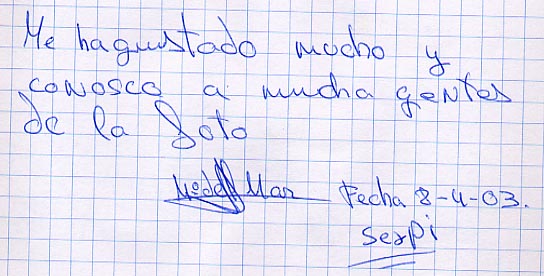 Me ha gustado mucho y
conosco a mucha gentes
de la foto
Mª del Mar Fecha 8-4-03.
Serpi